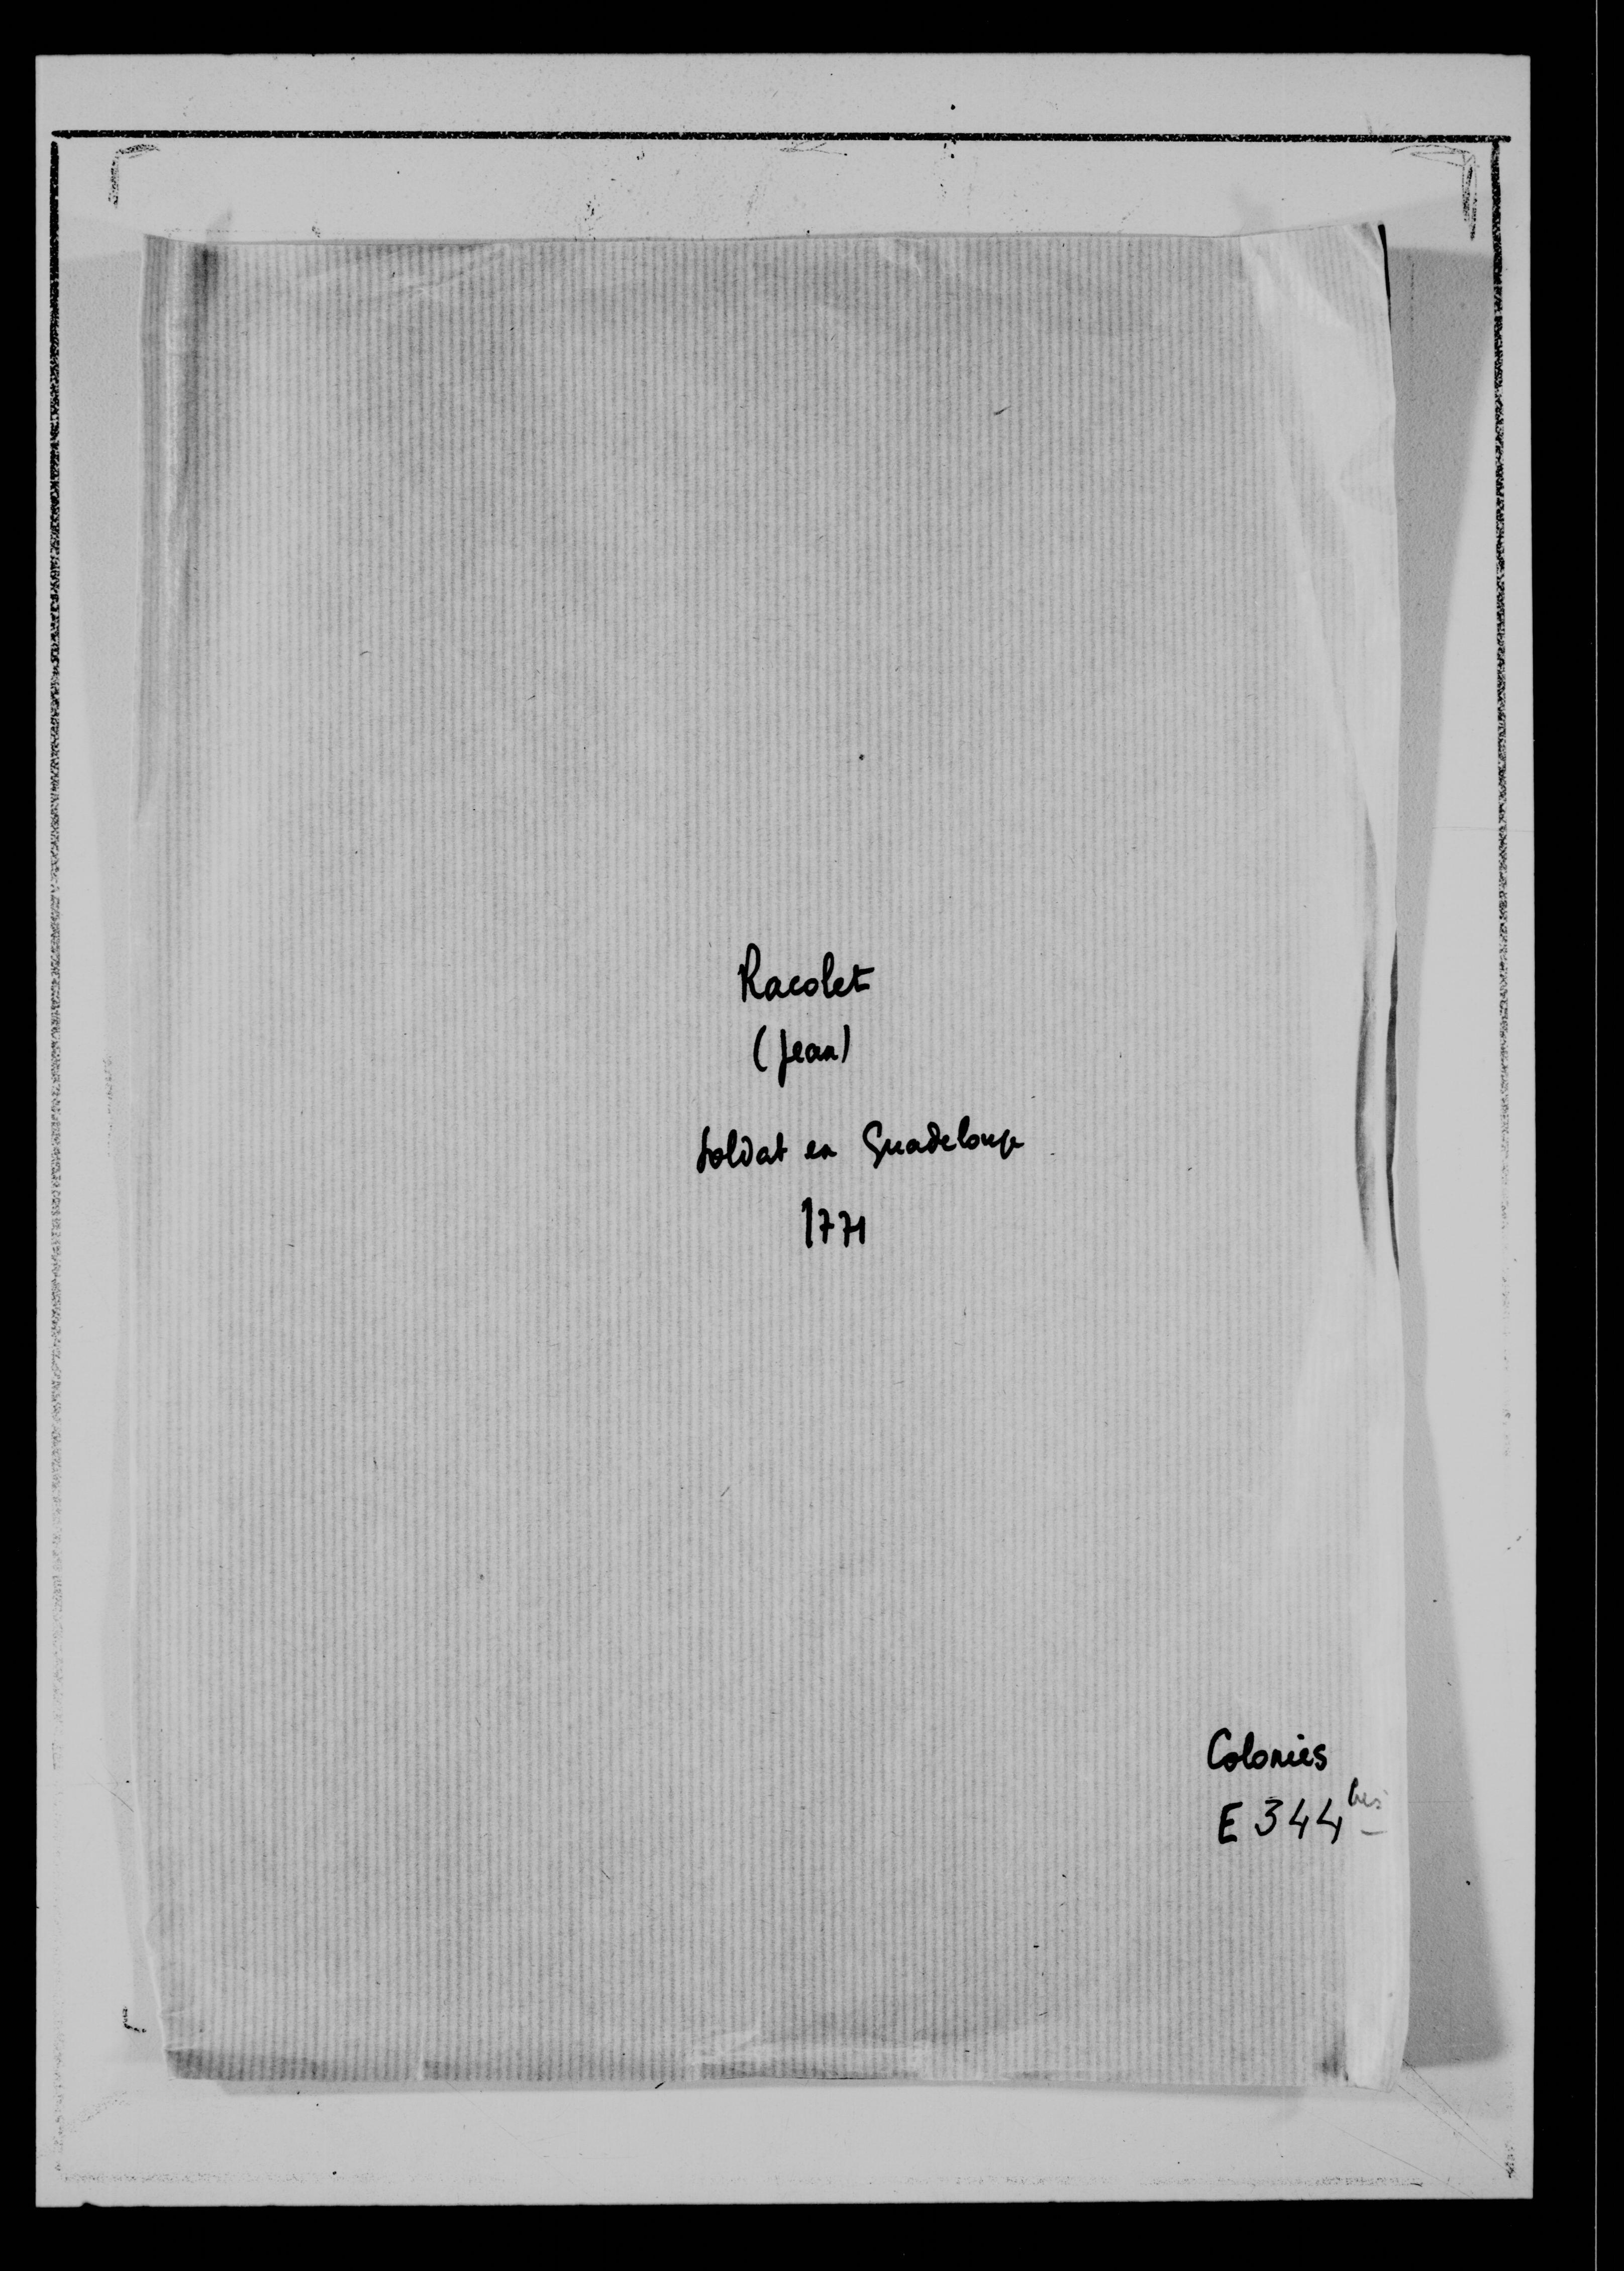 Racolet
(Jean)
Soldat en Guadeloupe
1771
Colonies
E 344 bis